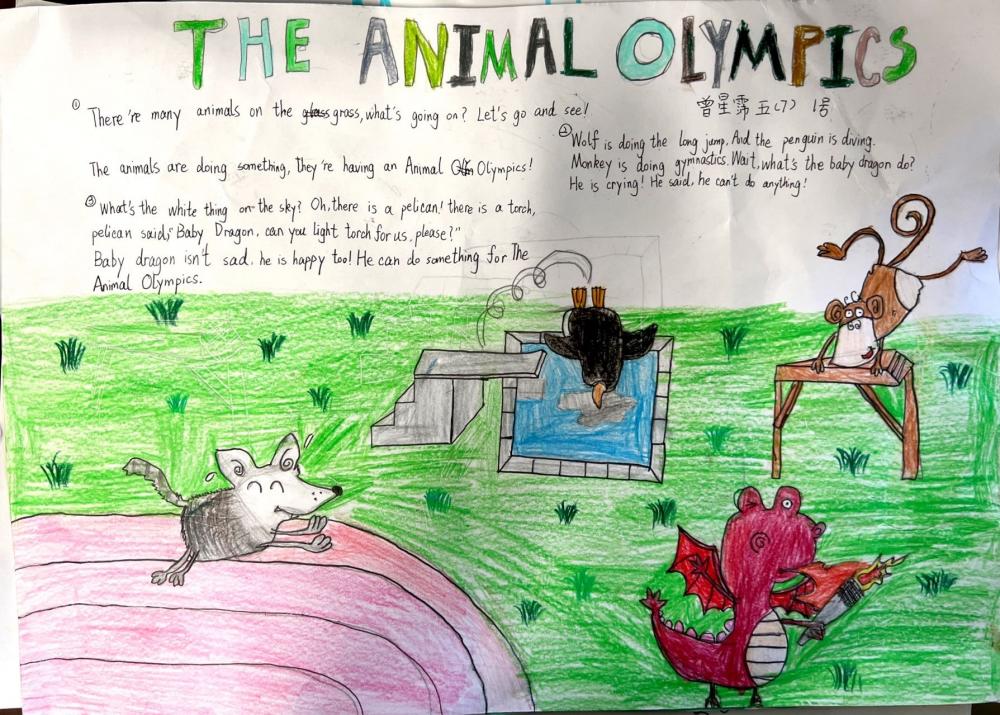 THE ANIMAL OLYMPICS
曾星霈 五(7) 1号
① There're many animals on the grass, what's going on? Let's go and see!
The animals are doing something, they're having an Animal Olympics!
② Wolf is doing the long jump. And the penguin is diving.
Monkey is doing gymnastics. Wait, what's the baby dragon do?
He is crying! He said, he can't do anything!
③ What's the white thing on the sky? Oh, there is a pelican! there is a torch,
pelican said, "Baby Dragon, can you light torch for us, please?"
Baby dragon isn't sad, he is happy too! He can do something for The
Animal Olympics.